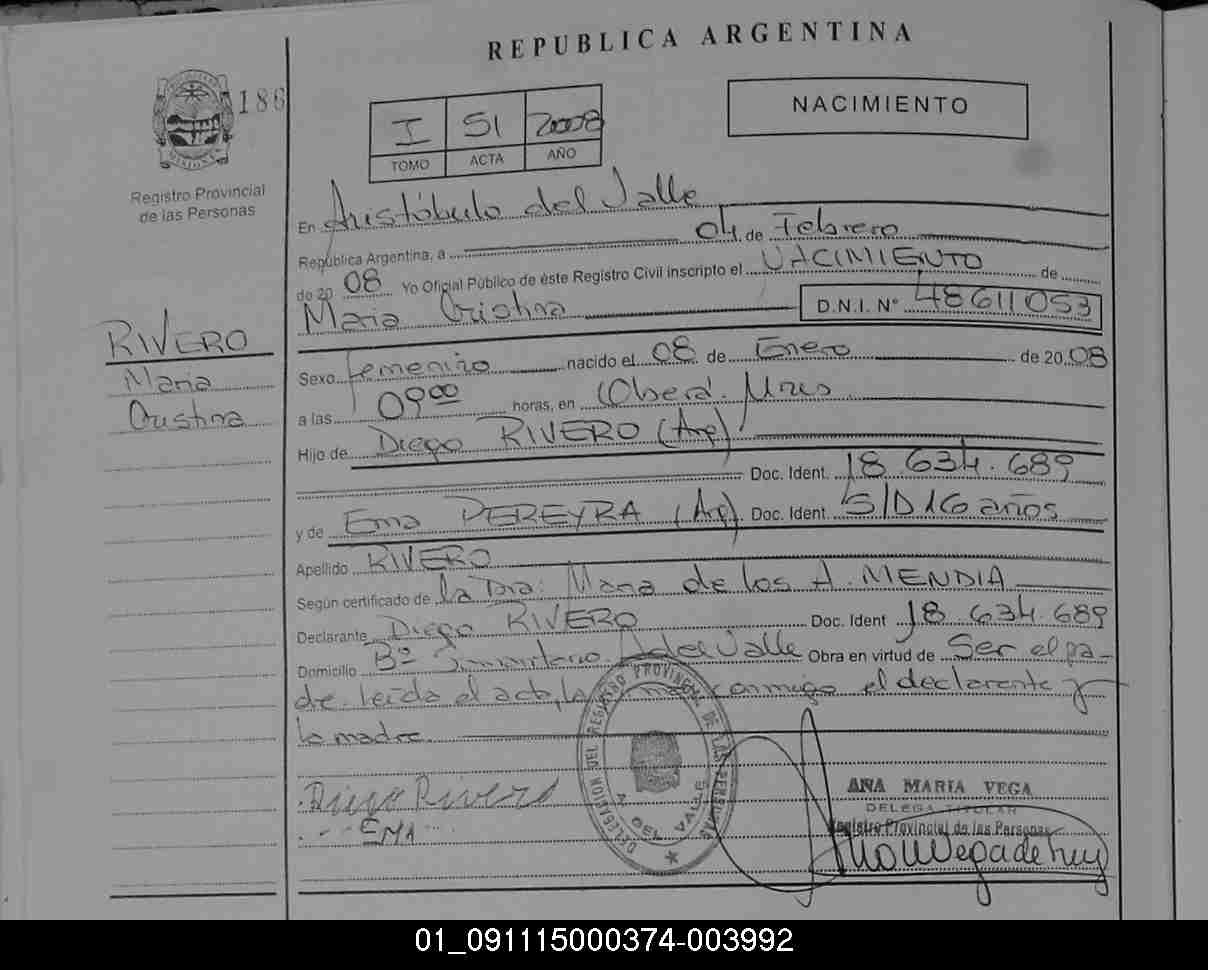 REPUBLICA ARGENTINA
186
NACIMIENTO
I 51 2008
TOMO ACTA AÑO
Registro Provincial
de las Personas
MISIONES
En Aristóbulo del Valle
República Argentina, a 04 de Febrero
de 20 08 Yo Oficial Público de éste Registro Civil inscripto el NACIMIENTO de
Maria Cristina D.N.I. Nº 48611053
RIVERO
Maria
Cristina
Sexo femenino nacido el 08 de Enero de 20 08
a las 09 00 horas, en Oberá. Mnes
Hijo de Diego RIVERO (Arg)
Doc. Ident. 18.634.689
y de Ema PEREYRA (Arg). Doc. Ident. S/D 16 años
Apellido RIVERO
Según certificado de la Dra: Maria de los A. MENDIA
Declarante Diego RIVERO Doc. Ident 18.634.689
Domicilio Bº A. del Valle Obra en virtud de Ser el pa-
dre. Leída el acta, la conmigo el declarante y
la madre.
Diego Rivero
EMA
DELEGACION DEL REGISTRO PROVINCIAL DE LAS PERSONAS
A. DEL VALLE
ANA MARIA VEGA
DELEGA TITULAR
Registro Provincial de las Personas
01_091115000374-003992